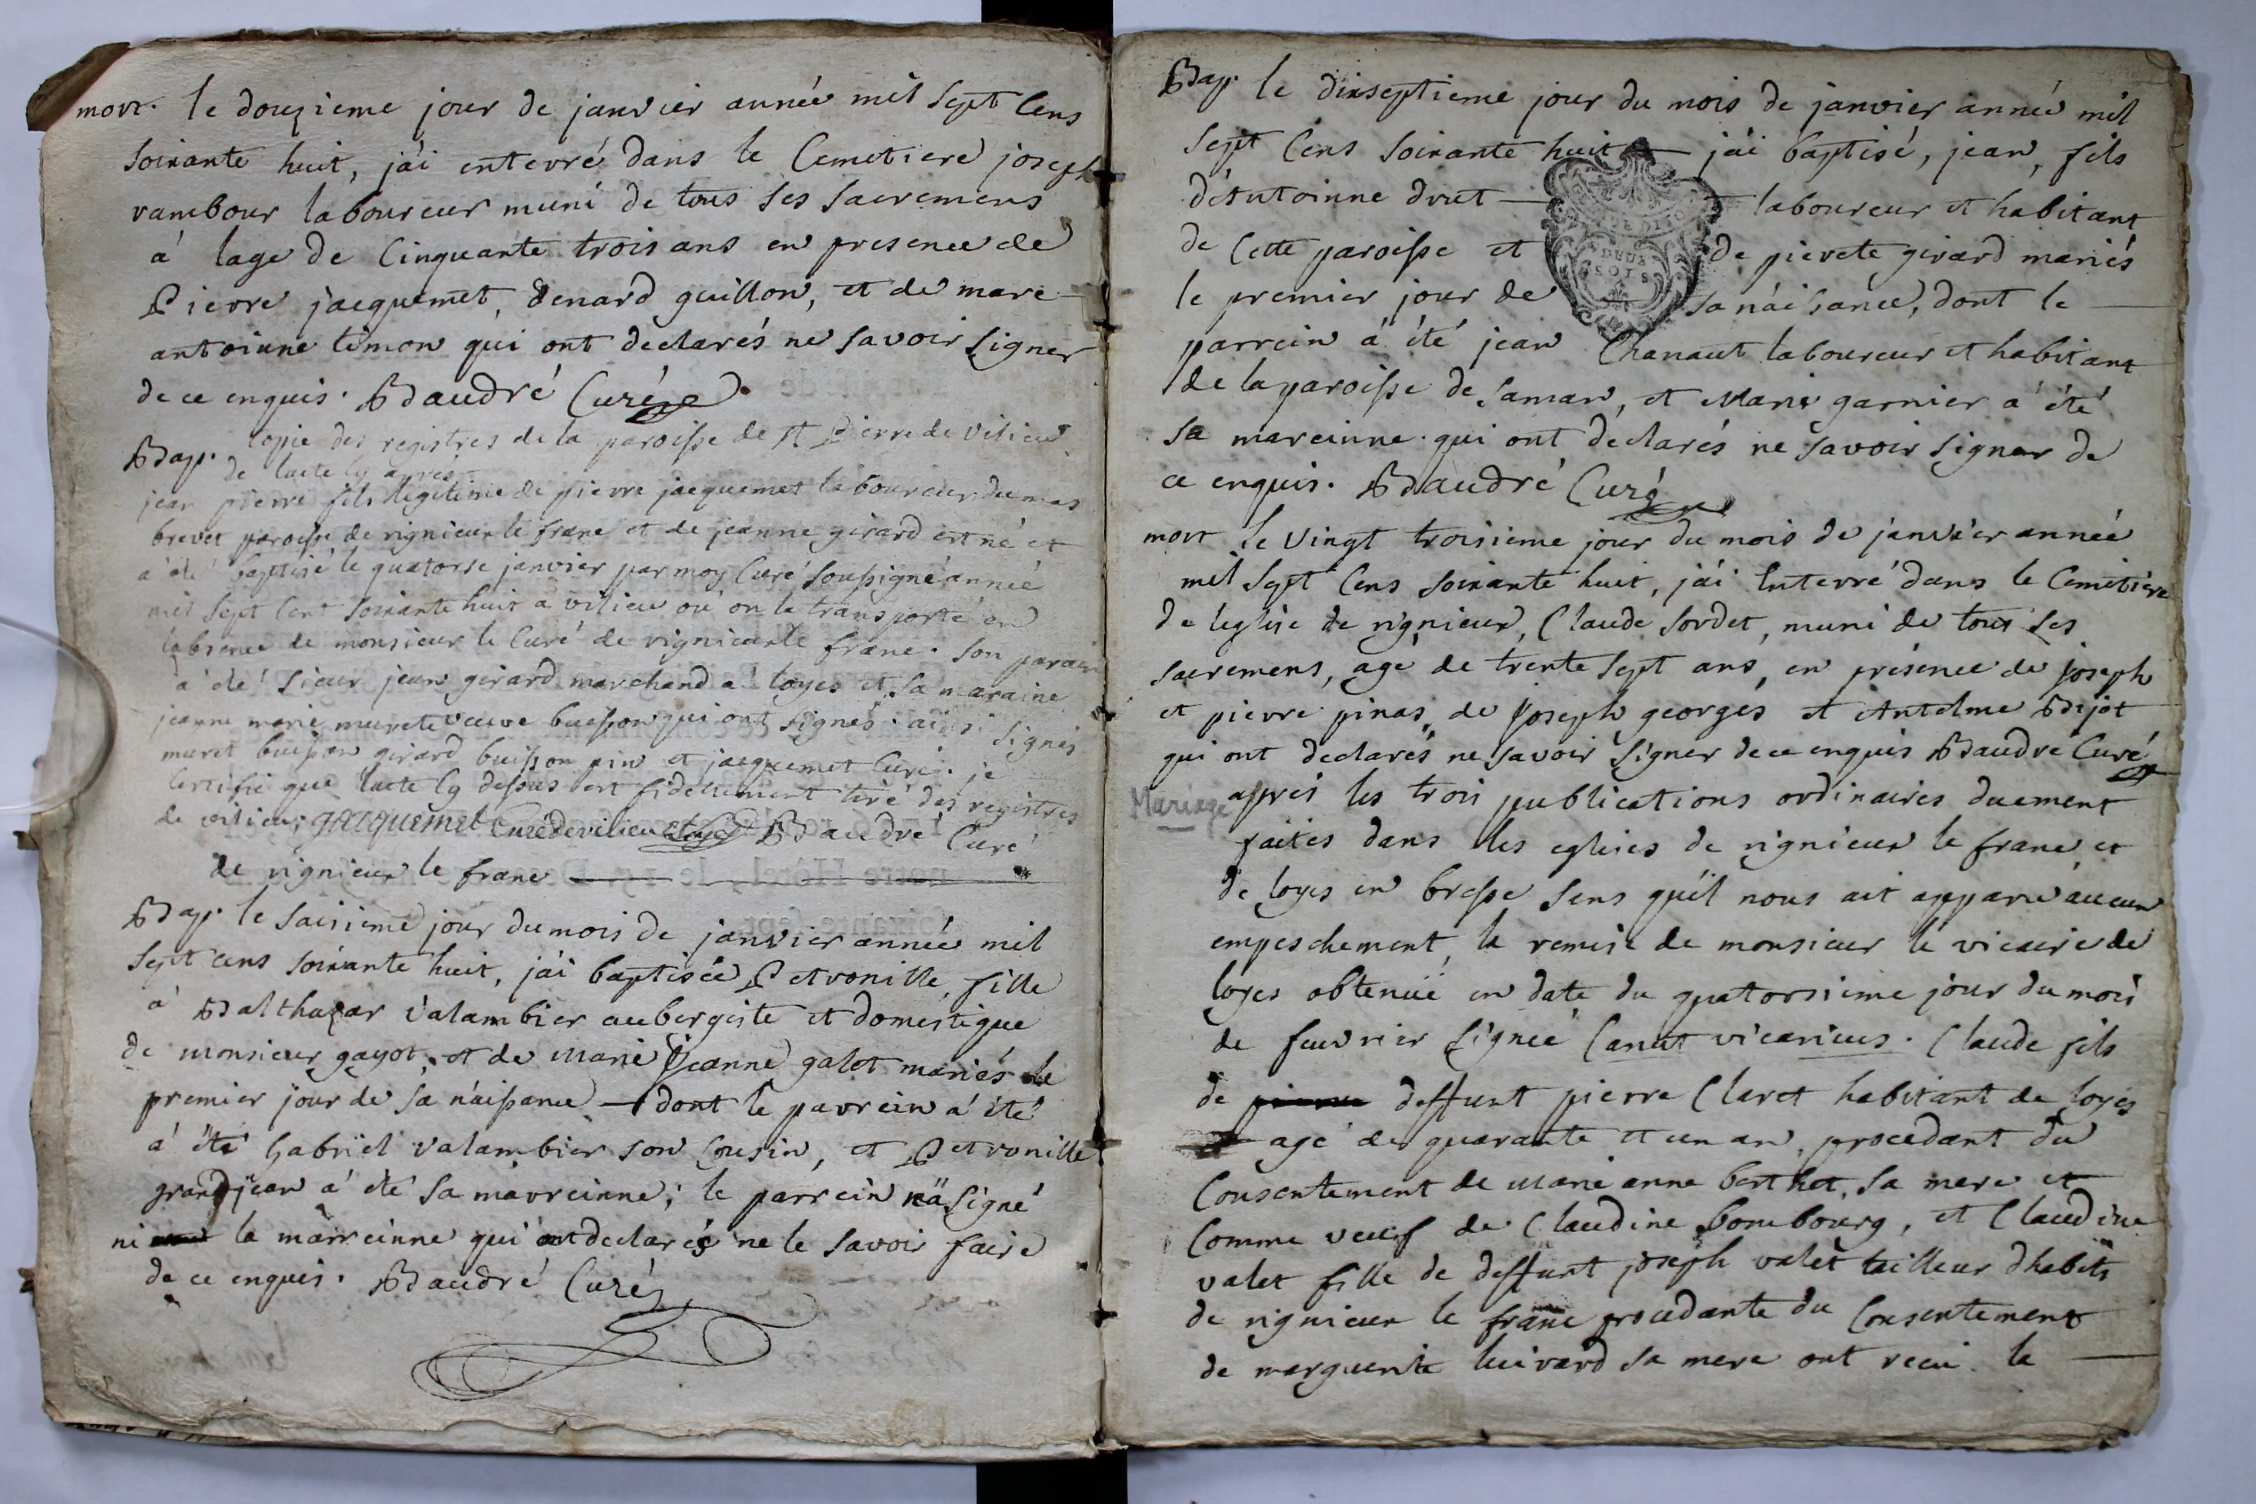 mort. le douzieme jour de janvier année mil sept Cens
soixante huit, j'ái enterré dans le Cemetiere joseph
rambour laboureur muni de tous ses sacremens
á lage de Cinquante trois ans en presence de
Pierre jacquemet, Benard guillon, et de marc
antoinne timon qui ont declarés ne savoir signer
de ce enquis. Baudré Curé
Bap. Copie des registres de la paroisse de st Pierre de Vilieu
de lacte cy apres
jean pierre fils legitime de pierre jacquemet laboureur du mas
brevet paroisse de rignieux le franc et de jeanne girard est né et
a été baptisé le quatorse janvier par moy Curé soussigné année
mil sept Cent soixante huit a vilieu ou on la transporté en
labsence de monsieur le Curé de rignieux le franc. son parain
a été sieur jean girard marchand a loyes et sa maraine
jeanne marie murete veuve buisson qui ont signés. ainsi signés
muret buisson girard buisson pin et jacquemet Curé. je
Certifie que lacte cy dessus est fidellement tiré des registres
de vilieu; jacquemet Curé de vilieu et loyes Baudré Curé
de rignieux le franc
Bap. le saisieme jour du mois de janvier année mil
sept cens soixante huit, j'ái baptisée Petronille fille
á Balthazar valambier aubergiste et domestique
de monsieur gayot, et de Marie jeanne galet mariés le
premier jour de sa náissance dont le parrein á été
á été gabriel valambier son Cousin, et Petronille
grandjean á été sa marreinne; le parrein n'a signé
ni la marreinne qui ont declarés ne le savoir faire
de ce enquis. Baudré Curé
Bap. le dixseptieme jour du mois de janvier année mil
sept Cens soixante huit j'ái baptisé, jean, fils
d'Antoinne drut laboureur et habitant
de Cette paroisse et de pierete girard mariés
le premier jour de sa náisance, dont le
parrein á été jean Chanaut laboureur et habitant
de la paroisse de Samans, et Marie garnier á été
sa mareinne qui ont declarés ne savoir signer de
ce enquis. Baudré Curé
DEUX
SOLS
mort le vingt troisieme jour du mois de janvier année
mil sept Cens soixante huit, j'ái Enterré dans le Cemetiere
de leglise de rignieux, Claude sordet, muni de tous ses
sacremens, agé de trente sept ans, en présence de joseph
et pierre pinas, de joseph georges et Antelme Bijot
qui ont declarés ne savoir signer de ce enquis Baudré Curé
Mariage apres les trois publications ordinaires duement
faites dans les eglises de rignieux le franc et
de loyes en bresse sens quil nous ait apparu aucun
empeschement, la remise de monsieur le vicaire de
loyes obtenüe en date du quatorsieme jour du mois
de feuvrier signée Canut vicarieus. Claude fils
de deffunt pierre Claret habitant de loyes
agé de quarante et un an, procedant du
Consentement de marie anne berthet, sa mere et
Comme veuf de Claudine bombourg, et Claudine
valet fille de deffunt joseph valet tailleur d'habits
de rignieux le franc procedante du Consentement
de marguerite luivard sa mere ont recu la